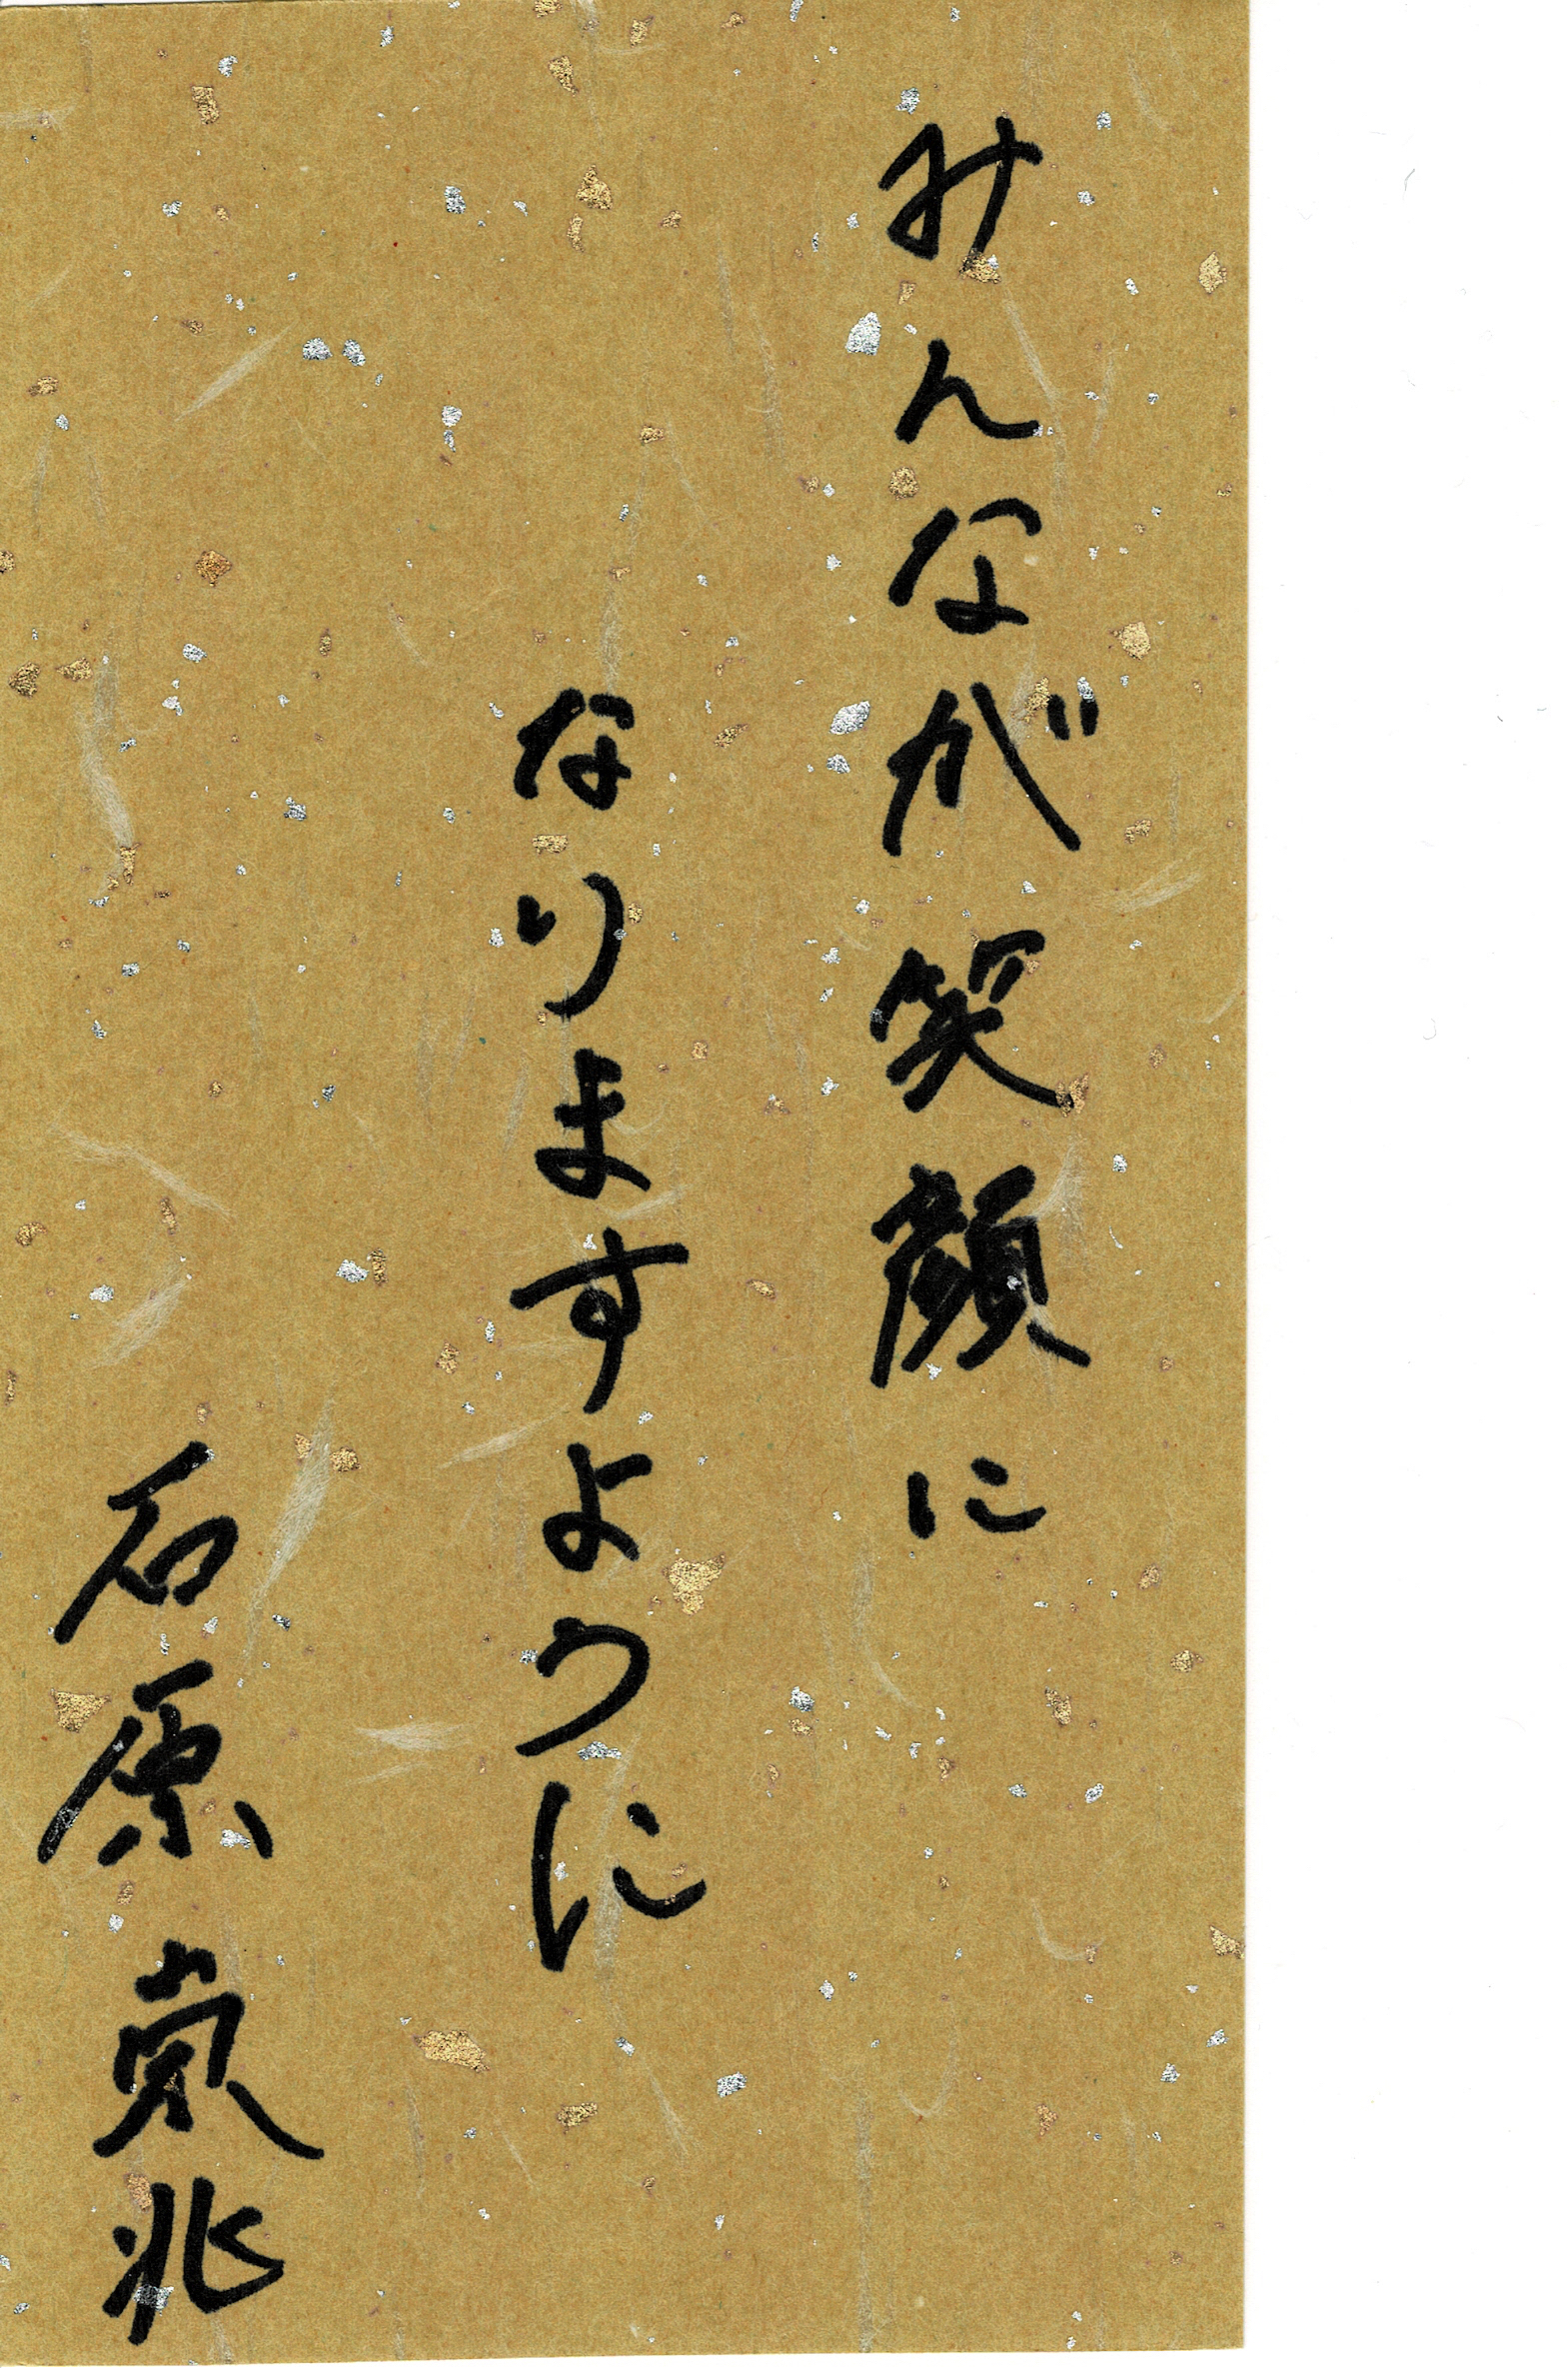 みんなが笑顔に
なりますように
石原東北